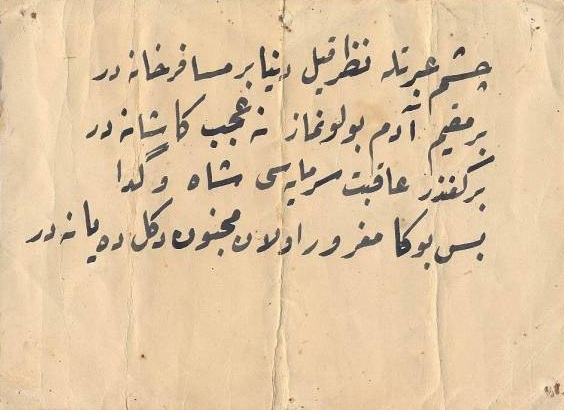 چشم عبرتله نظر قیل دنیا بر مسافرخانه در
بر مقیم آدم بولونماز نه عجب کاشانه در
بر کفندر عاقبت سرمایه سی شاه و گدا
بس بوکا مغرور اولان مجنون دکل ده یا نه در